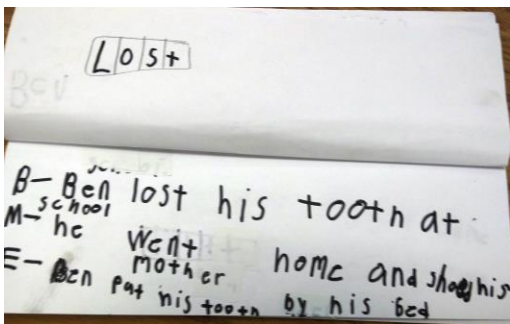 Lost
Ben
B- Ben lost his tooth at
school
M- he went home and show his
mother
E- Ben pat his tooth by his bed